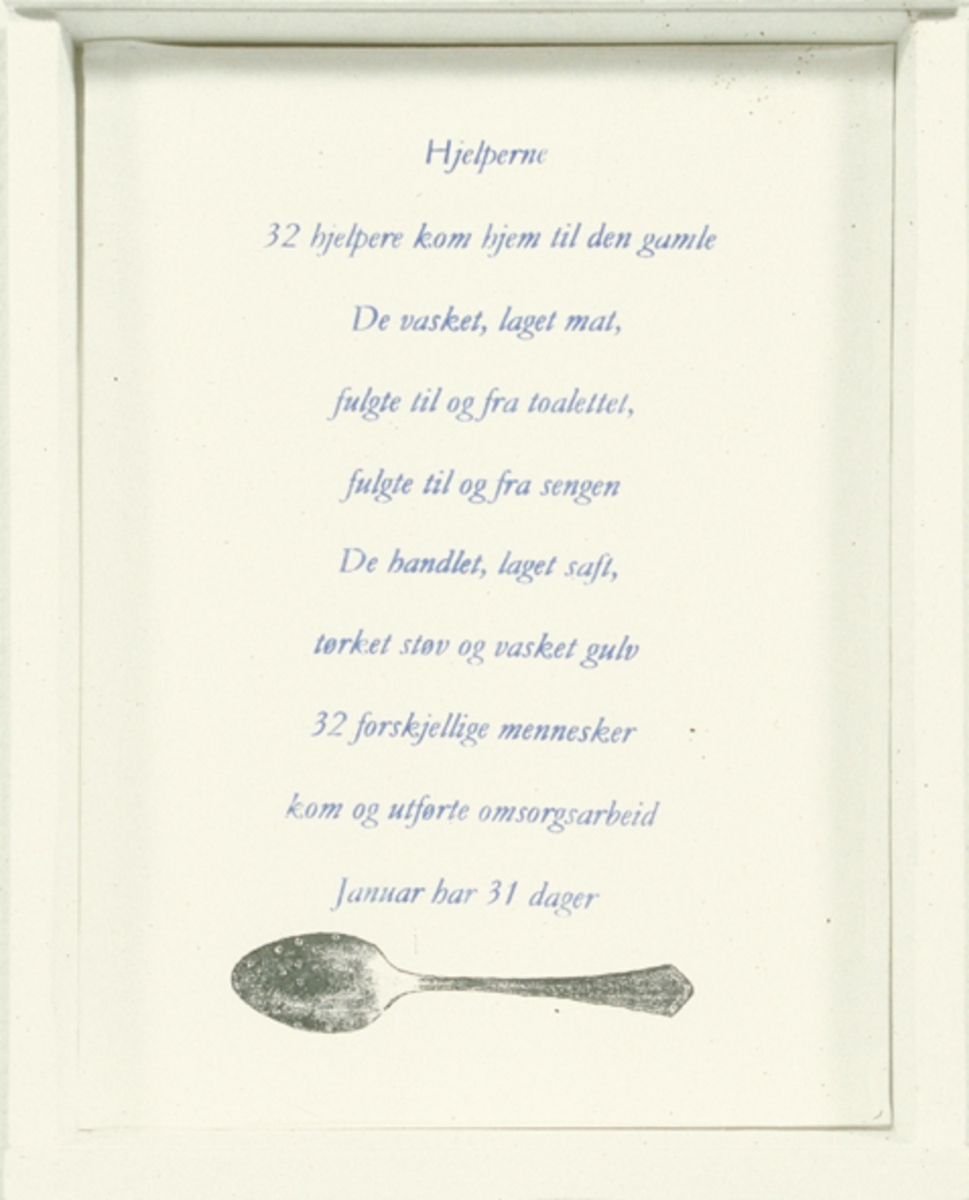 Hjelperne
32 hjelpere kom hjem til den gamle
De vasket, laget mat,
fulgte til og fra toalettet,
fulgte til og fra sengen
De handlet, laget saft,
tørket støv og vasket gulv
32 forskjellige mennesker
kom og utførte omsorgsarbeid
Januar har 31 dager